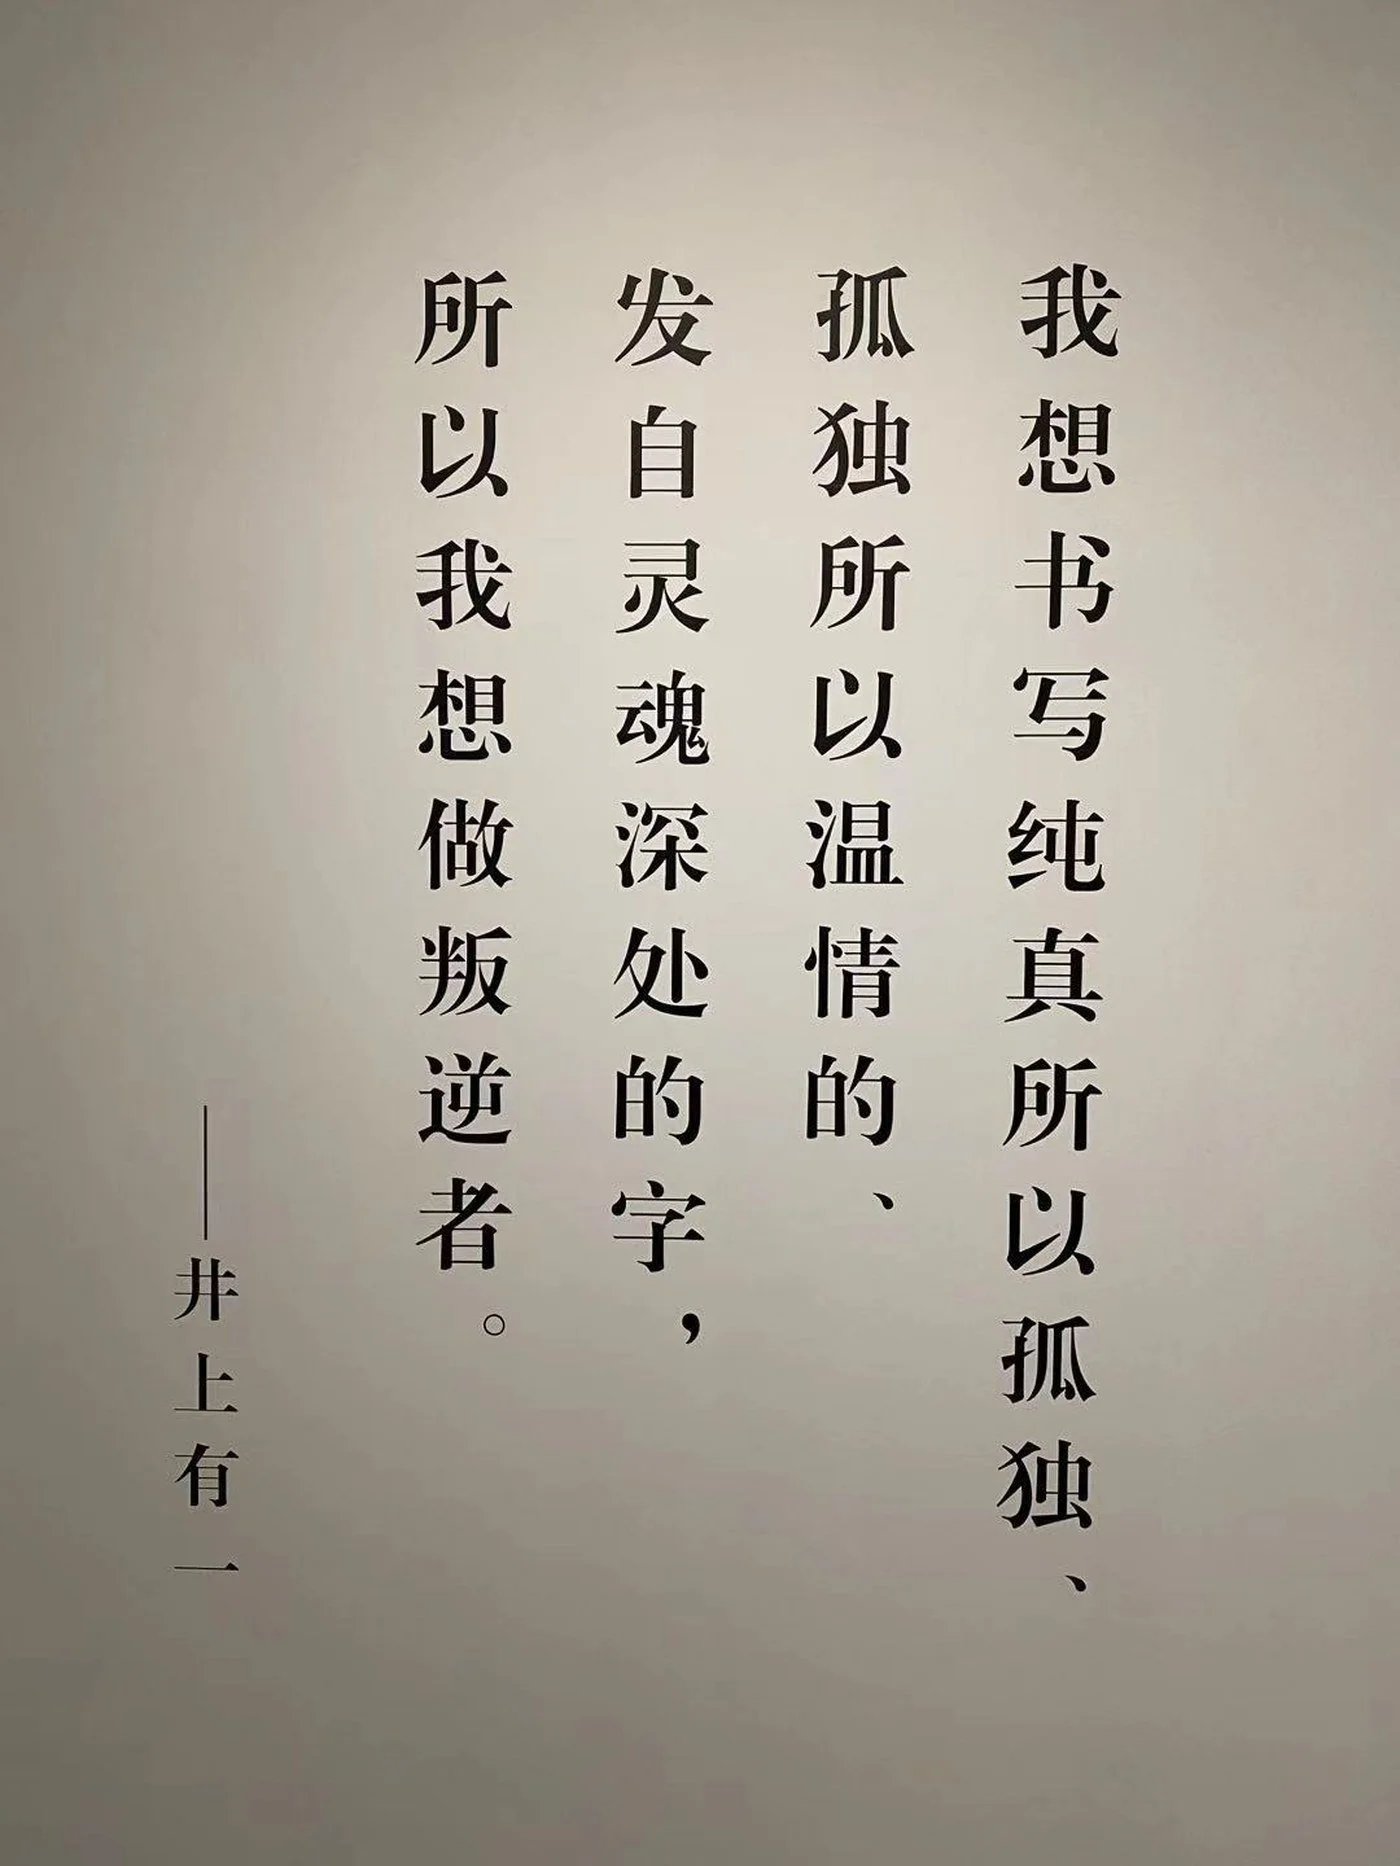 我想书写纯真所以孤独、
孤独所以温情的、
发自灵魂深处的字，
所以我想做叛逆者。
——井上有一